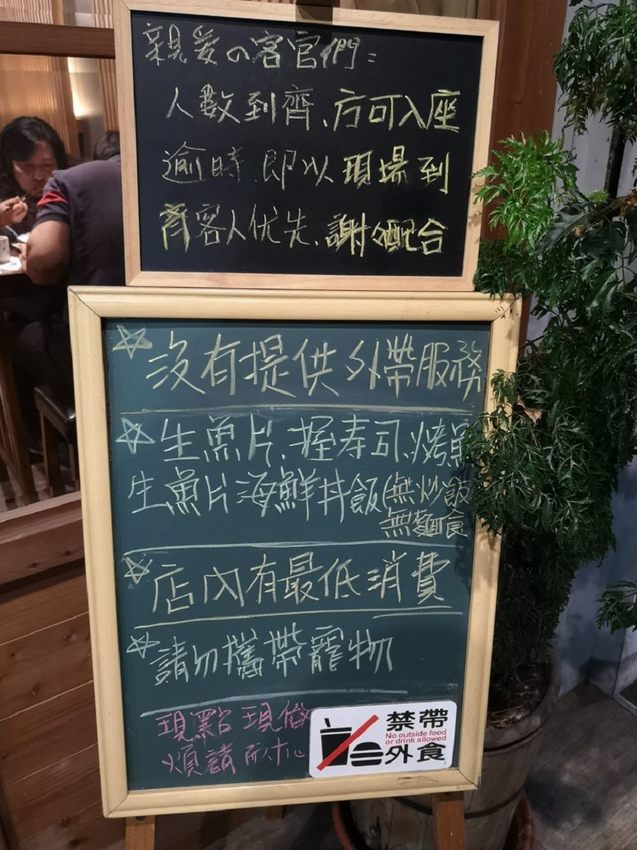 親愛の客官們:
人數到齊、方可入座
逾時、即以現場到
齊客人优先、謝々配合
☆沒有提供外帶服務
☆生魚片、握壽司、烤
生魚片海鮮丼飯(無炒飯
無麵食
☆店內有最低消費
☆請勿攜帶寵物
現點現做
煩請耐心
禁帶
No outside food
or drink allowed
外食